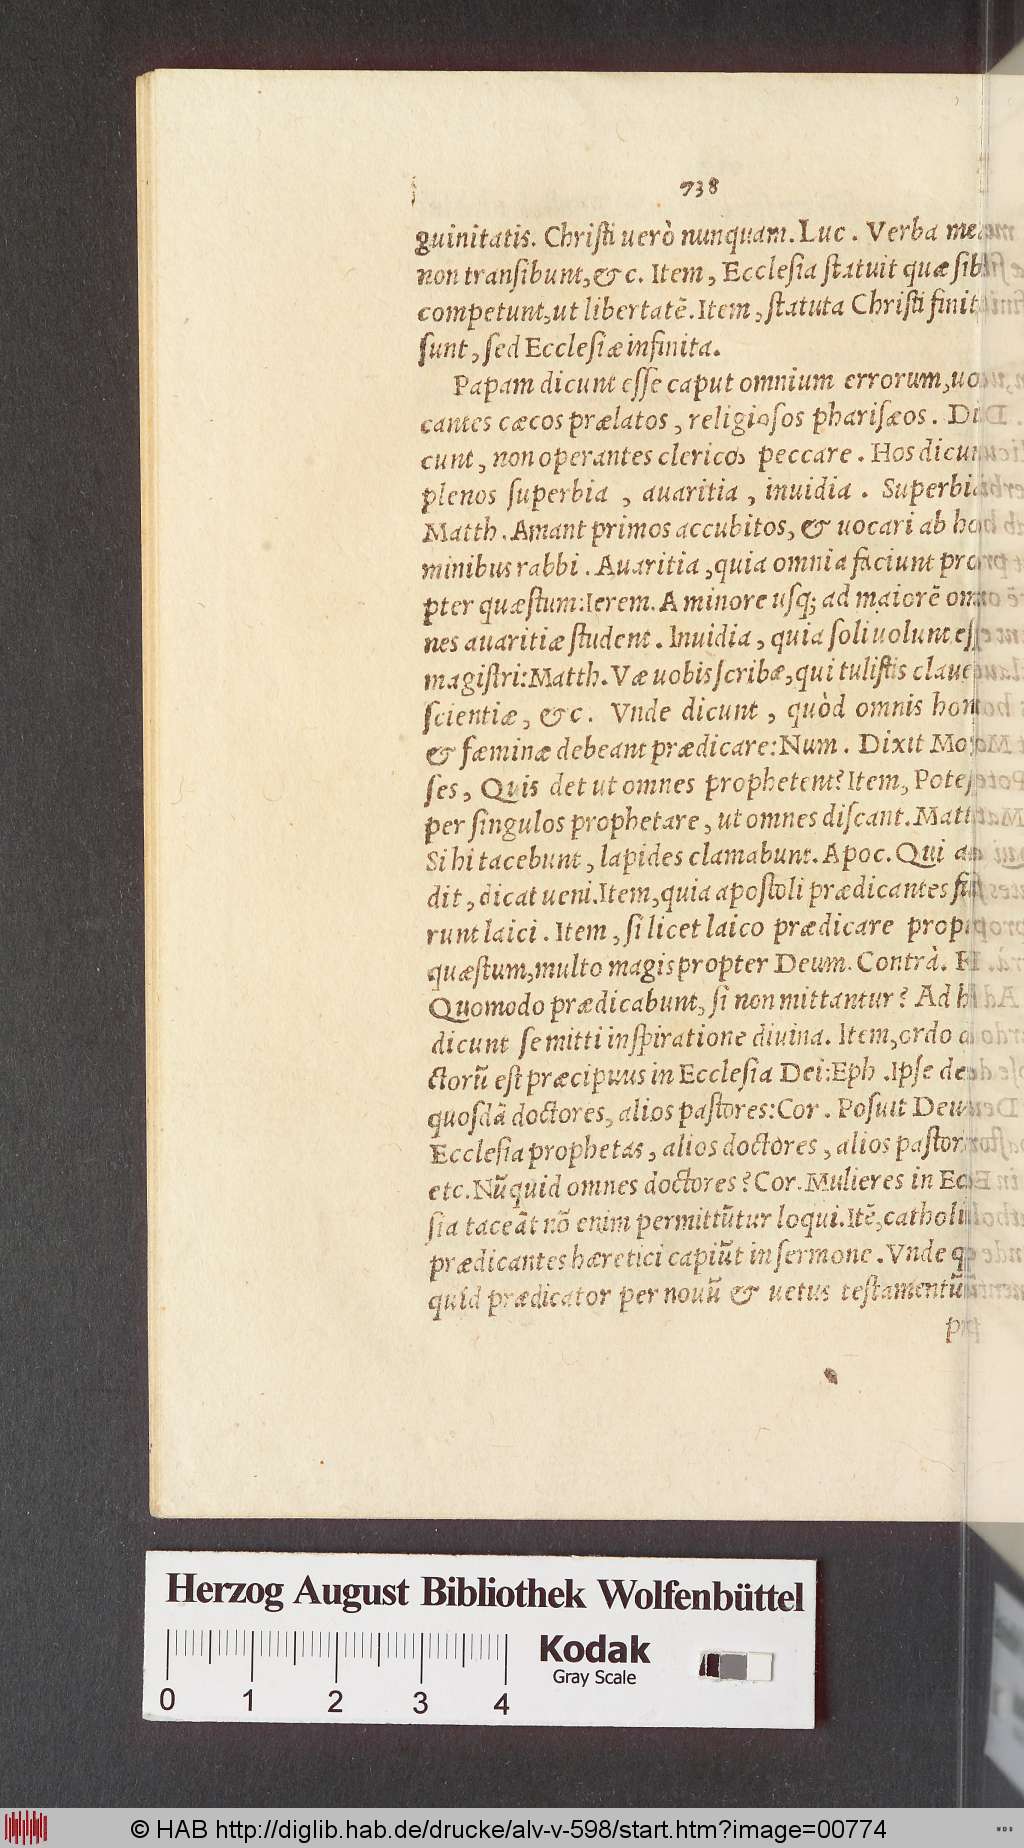 738
guinitatis. Chriſti uerò nunquam. Luc. Verba mea
non tranſibunt, & c. Item, Eccleſia ſtatuit quæ ſibi
competunt, ut libertatē. Item, ſtatuta Chriſti finita
ſunt, ſed Eccleſiæ infinita.
Papam dicunt eſſe caput omnium errorum, uo-
cantes cæcos prælatos, religioſos phariſæos. Di-
cunt, non operantes clericos peccare. Hos dicunt
plenos ſuperbia, auaritia, inuidia. Superbia
Matth. Amant primos accubitos, & uocari ab ho-
minibus rabbi. Auaritia, quia omnia faciunt pro-
pter quæſtum: Ierem. A minore uſq; ad maiorē om-
nes auaritiæ ſtudent. Inuidia, quia ſoli uolunt eſſe
magiſtri: Matth. Væ uobis ſcribæ, qui tuliſtis clauem
ſcientiæ, & c. Vnde dicunt, quòd omnis homo
& fæminæ debeant prædicare: Num. Dixit Moy-
ſes, Quis det ut omnes prophetent? Item, Poteſt
per ſingulos prophetare, ut omnes diſcant. Matth.
Si hi tacebunt, lapides clamabunt. Apoc. Qui au-
dit, dicat ueni. Item, quia apoſtoli prædicantes fue-
runt laici. Item, ſi licet laico prædicare propter
quæſtum, multo magis propter Deum. Contrà.
Quomodo prædicabunt, ſi non mittantur? Ad
dicunt ſe mitti inſpiratione diuina. Item, ordo do-
ctorũ eſt præcipuus in Eccleſia Dei: Eph. Ipſe dedit
quoſdã doctores, alios paſtores: Cor. Poſuit Deus
Eccleſia prophetas, alios doctores, alios paſtores
etc. Nũquid omnes doctores? Cor. Mulieres in Eccle-
ſia taceãt nõ enim permittũtur loqui. Itē, catholici
prædicantes hæretici capiũt in ſermone. Vnde
quid prædicator per nouũ & uetus teſtamentũ
Herzog August Bibliothek Wolfenbüttel
Kodak
Gray Scale
0 1 2 3 4
© HAB http://diglib.hab.de/drucke/alv-v-598/start.htm?image=00774